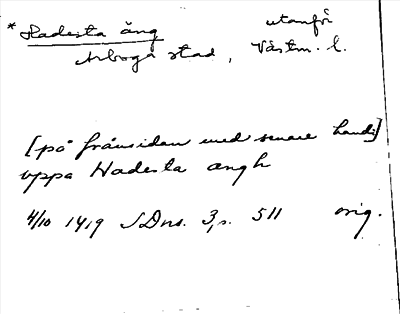 * Hadesta äng utanför
Arboga stad, Västm. l.
[på frånsidan med senare hand:]
vppa Hadesta ængh
4/10 1419 SDns. 3, s. 511 orig.